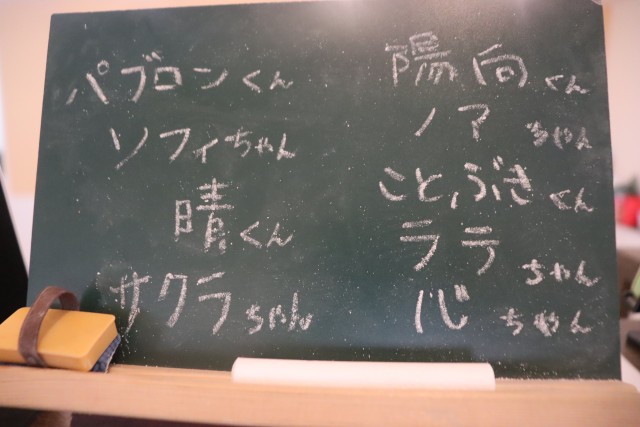 パブロンくん
ソフィちゃん
晴くん
サクラちゃん
陽向くん
ノアちゃん
ことぶきくん
ララちゃん
心ちゃん